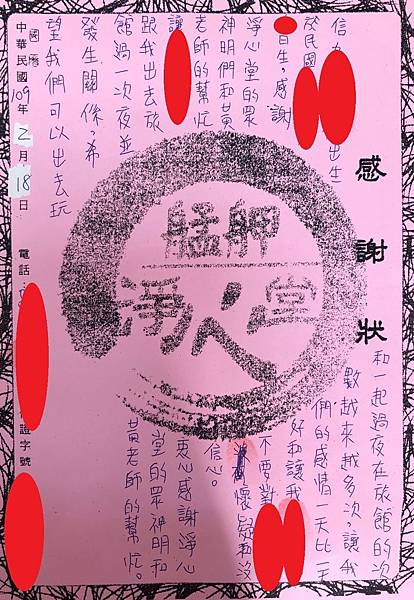 感謝狀
信
出生
於民國
日生,感謝
淨心堂的眾
神明們和黃
老師的幫忙
讓
跟我出去旅
館過一次夜並
發生關係,希
望我們可以出去玩
和一起過夜在旅館的次
數越來越多次,讓我
們的感情一天比一天
好和讓我
不要對
懷疑和沒
信心。
衷心感謝淨心
堂的眾神明和
黃老師的幫忙。
艋舺
淨心堂
國曆
中華民國109年2月18日
電話
證字號